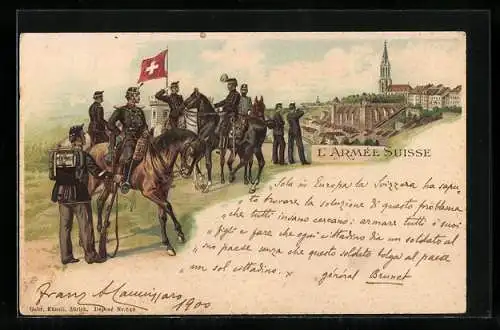 L'ARMÉE SUISSE
Sola in Europa la Svizzera ha sapu-
"to trovare la soluzione di questo problema
"che tutti invano cercano: armare tutti i suoi
"figli e fare che ogni cittadino dia un soldato al
"suo paese senza che questo soldato tolga al paese
"un sol cittadino. "
général Brunet
Franz
1900
Gebr. Künzli, Zürich. Dépôsé No.